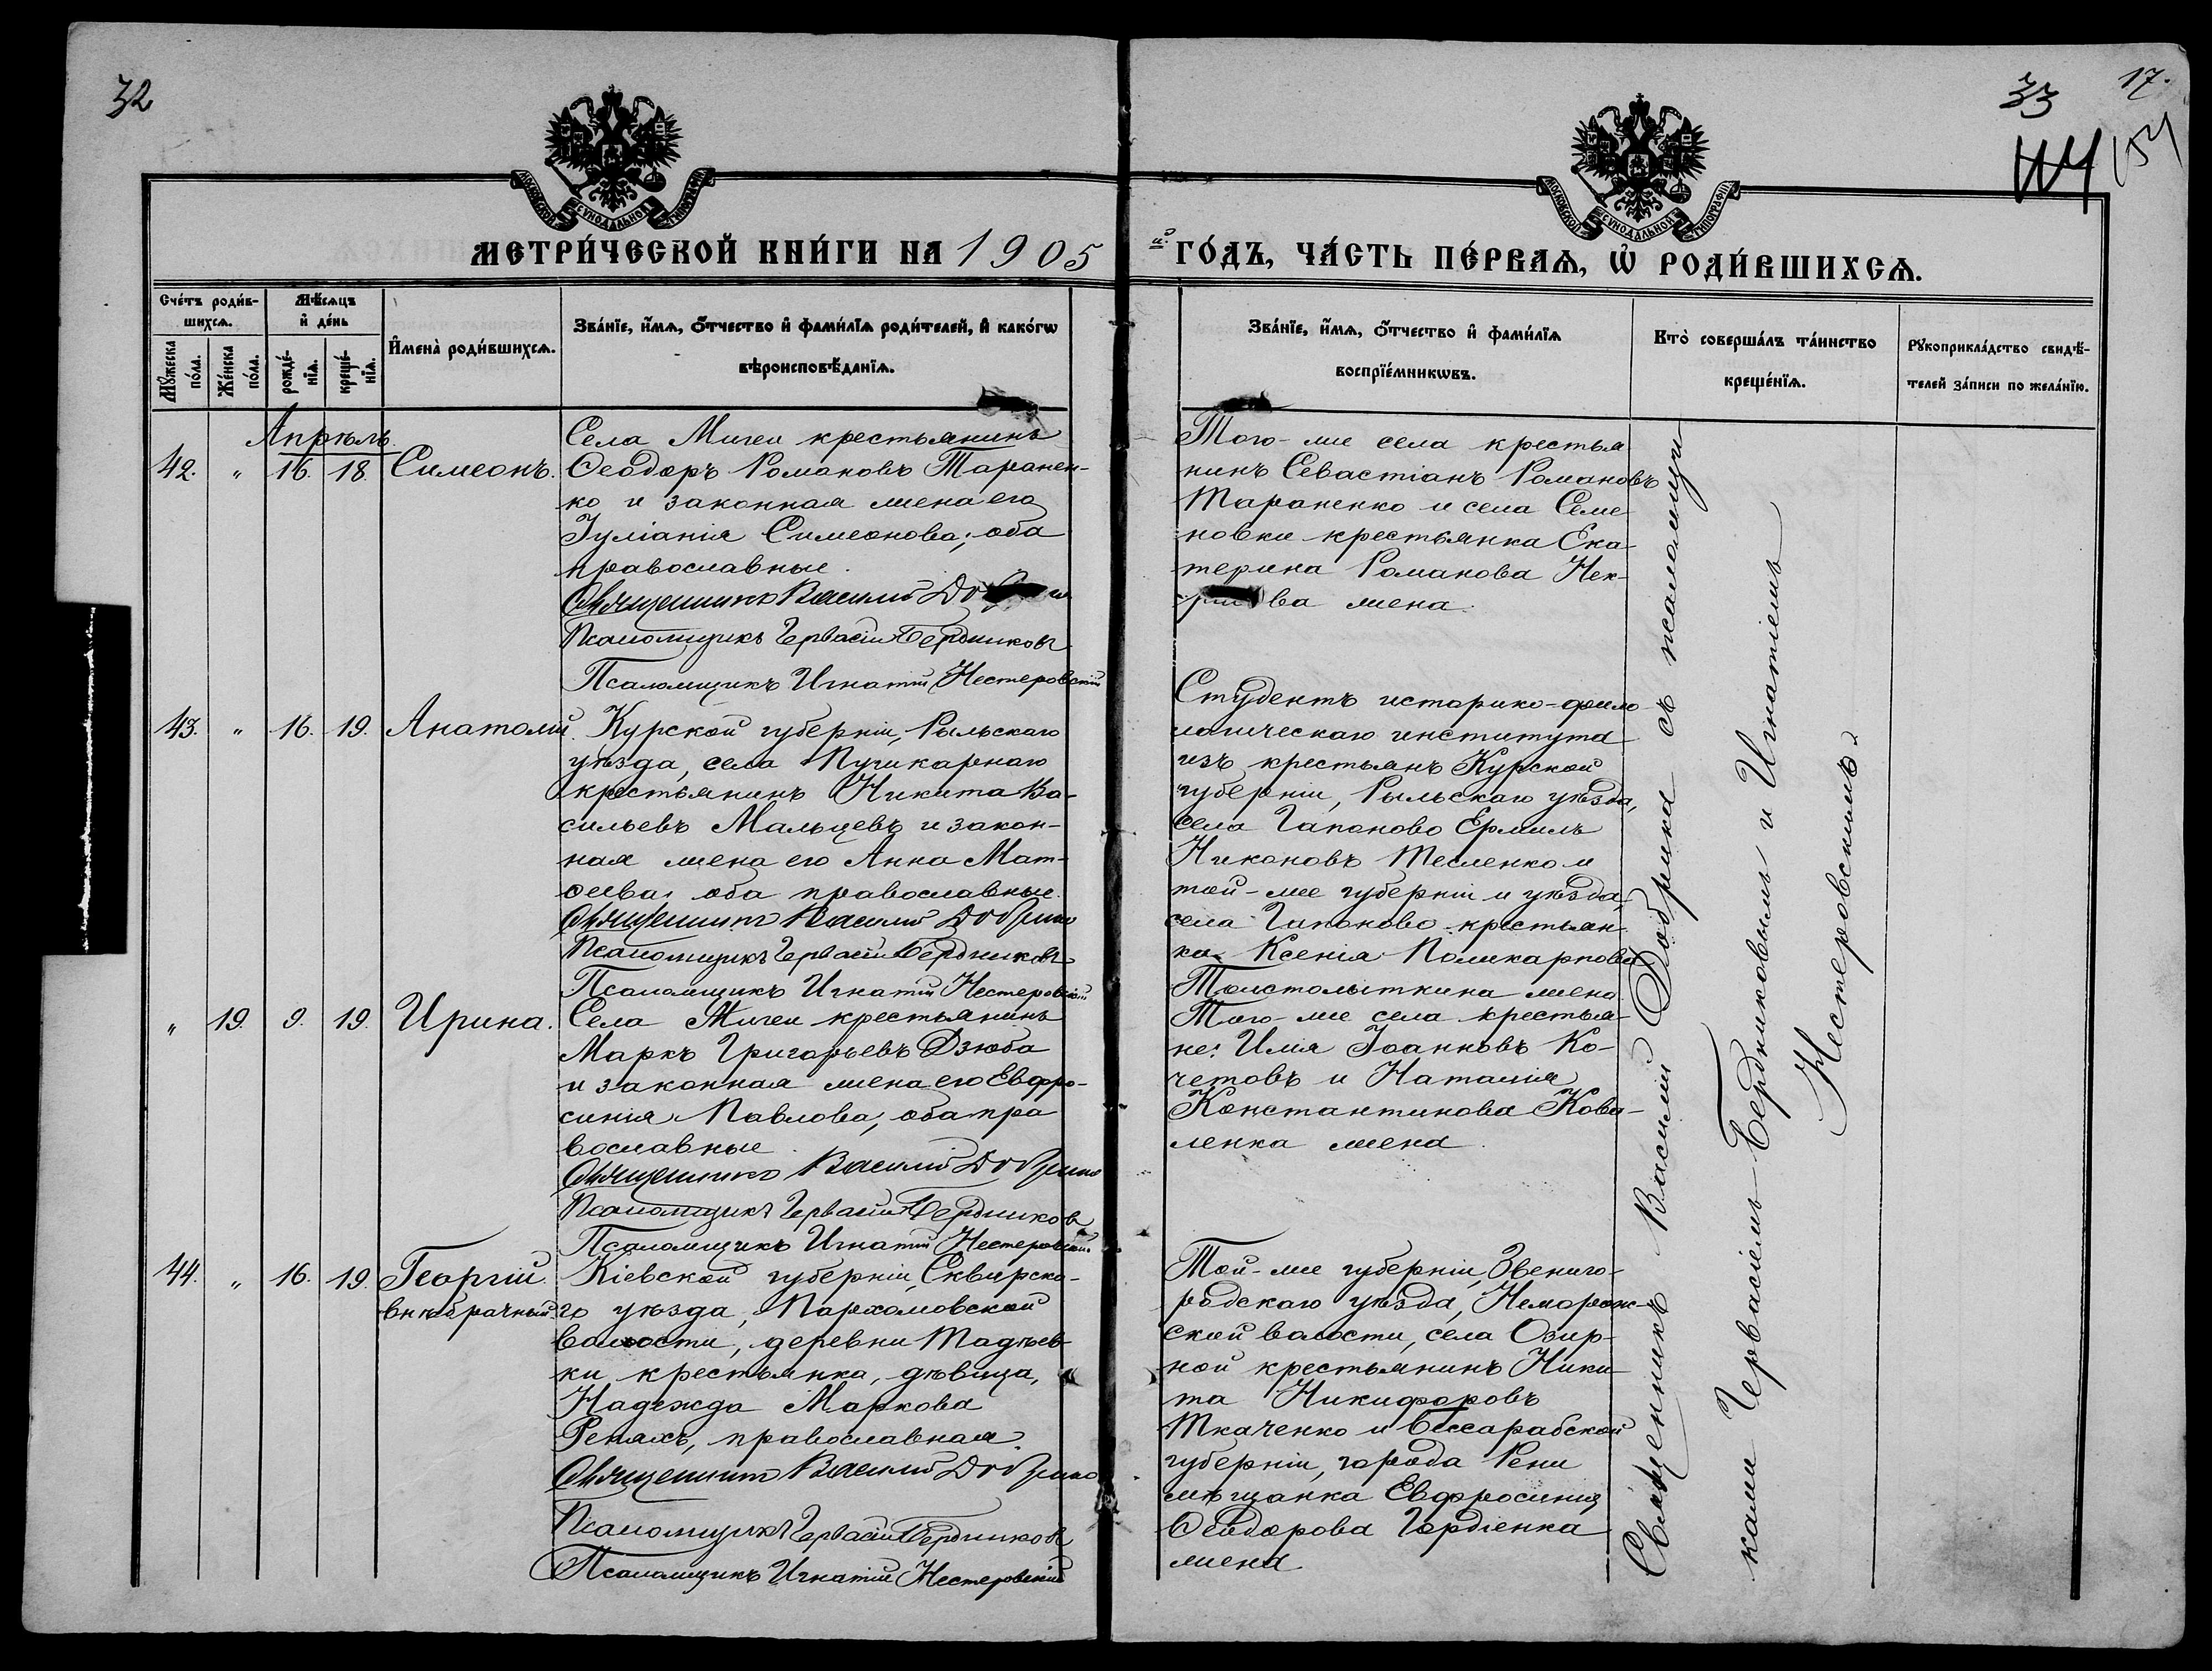 32
33
17.
154
МОСКОВСКОЙ СѴНОДАЛЬНОЙ ТИПОГРАФІИ
МОСКОВСКОЙ СѴНОДАЛЬНОЙ ТИПОГРАФІИ
МЕТРИ́ЧЕСКОЙ КНИ́ГИ НА 1905
й ГО́ДЪ, ЧА́СТЬ ПЕ́РВАѦ, Ѡ҆ РОДИ́ВШИХСѦ.
Сче́тъ роди́в-
шихсѧ.
Мꙋ́жеска
по́ла.
Же́нска
по́ла.
Мѣ́сѧцъ
и҆ де́нь
рожде́-
нїѧ.
креще́-
нїѧ.
И҆мена̀ роди́вшихсѧ.
Зва́нїе, и҆́мѧ, ѻ҆́тчество и҆ фами́лїѧ роди́телей, и҆ како́гѡ
вѣроисповѣ́данїѧ.
Зва́нїе, и҆́мѧ, ѻ҆́тчество и҆ фами́лїѧ
воспрїе́мникѡвъ.
Кто̀ соверша́лъ та́инство
креще́нїѧ.
Рꙋкоприкла́дство свидѣ́-
телей за́писи по жела́нїю.
Апрѣль.
42. " 16. 18. Симеонъ.
Села Мигеи крестьянинъ
Ѳеодоръ Романовъ Таранен-
ко и законная жена его
Іуліанія Симеонова; оба
православные.
Священникъ Василій
Псаломщикъ Гервасій Бердниковъ
Псаломщикъ Игнатій Нестеровскій
Того-же села крестья
нинъ Севастіанъ Романовъ
Тараненко и села Семе
новки крестьянка Ека-
терина Романова Нек-
ва жена.
43. " 16. 19. Анатолій.
Курской губерніи, Рыльскаго
уѣзда, села Пушкарнаго
крестьянинъ Никита Ва-
сильевъ Мальцевъ и закон-
ная жена его Анна Мат-
ѳеева, оба православные.
Священникъ Василій Добрика
Псаломщикъ Гервасій Бердниковъ
Псаломщикъ Игнатій Нестеровскій
Студентъ историко-фило
логическаго института
изъ крестьянъ Курской
губерніи, Рыльскаго уѣзда,
села Гапоново Ермилъ
Никоновъ Тесленко и
той-же губерніи и уѣзда,
села Гапоново крестьян-
ка Ксенія Поликарпова
Толстолыткина жена.
" 19. 9. 19. Ирина.
Села Мигеи крестьянинъ
Маркъ Григорьевъ Дзюба
и законная жена его Евфро-
синія Павлова, оба пра
вославные.
Священникъ Василій Добрика
Псаломщикъ Гервасій Бердниковъ
Псаломщикъ Игнатій Нестеровскій
Того-же села крестья-
не: Илія Іоанновъ Ко-
четовъ и Наталія
Константинова Кова-
ленка жена.
44. " 16. 19. Георгій.
внѣбрачный
Кіевской губерніи, Сквирска-
го уѣзда, Пархомовской
волости, деревни Тадѣев-
ки крестьянка, дѣвица,
Надежда Маркова
Репяхъ, православная.
Священникъ Василій Добрика
Псаломщикъ Гервасій Бердниковъ
Псаломщикъ Игнатій Нестеровскій
Той-же губерніи, Звениго-
родскаго уѣзда, Неморож-
ской волости, села Озир-
ной крестьянинъ Ники-
та Никифоровъ
Ткаченко и Бессарабской
губерніи, города Рени
мѣщанка Евфросинія
Ѳеодорова Гордіенка
жена.
Священникъ Василій Добрика съ псаломщи
ками Гервасіемъ Бердниковымъ и Игнатіемъ
Нестеровскимъ.